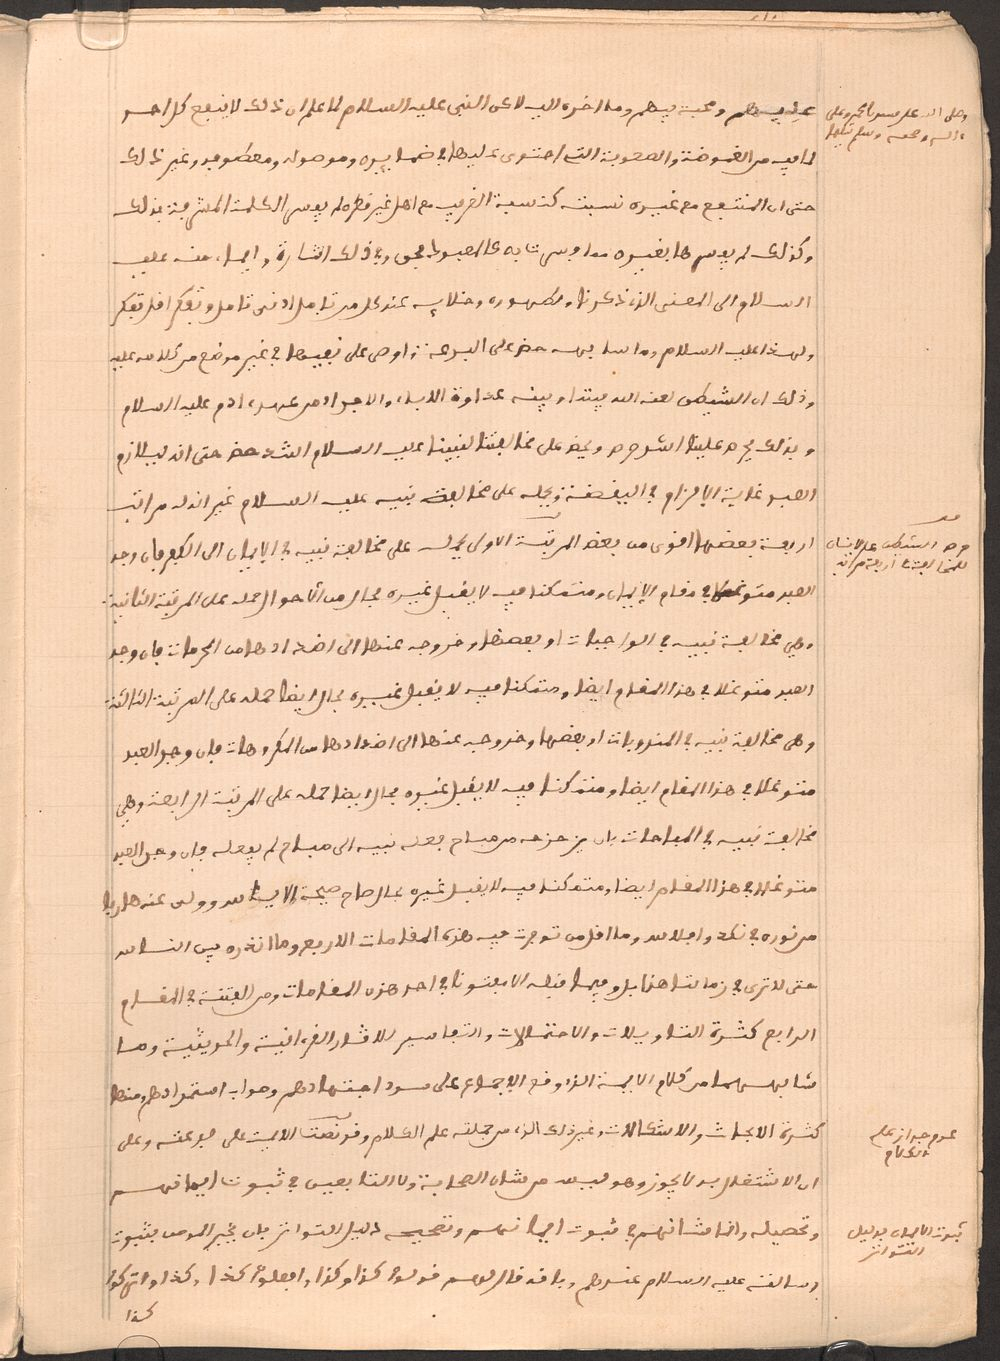 عليهم ومحبة بهم وما اخره اليه لاعن النبي عليه السلام لما علم ان ذلك لا ينفع كل احد
لما فيه من الغموضة والصعوبة التي احتوى عليها في ضمايره وموصوله ومعطوفه وغير ذلك
حتى ان المنتفع مع غيره نسبته كنسبة الغريب مع اهل غير قطره لم يومن الكلمة المشرفة بذلك
وكذلك لم يومن بها بغيره
السلام الى المعنى الذي ذكرنا وظهوره وجلايه عند كل من تامل ادنى تامل وتفكر اقل تفكر
ولهذا عليه السلام وما سا بهه حض على البدعة واوصى على نفيها في غير موضع من كلامه عليه
وذلك ان الشيطن لعنه الله بيننا وبينه عداوة الاباء والاجداد من عهد ادم عليه السلام
وبذلك يحرص علينا اشد حرص ويحض على مخالفتنا لنبينا عليه السلام اشد حض حتى انه ليلازم
العبد غاية الالزام في اليقظة ويحمله على مخالفة نبيه عليه السلام غير انه له مراتب
اربعة بعضها اقوى من بعض المرتبة الاولى يحمله على مخالفة نبيه في الايمان الى الكفر فان وجد
العبد متوغلا في مقام الايمان ومتمكنا فيه لا يقبل غيره بحال من الاحوال حمله على المرتبة الثانية
وهي مخالفة نبيه في الواجبات او بعضها وخروجه عنها الى اضدادها من المحرمات فان وجد
العبد متوغلا في هذا المقام ايضا ومتمكنا فيه لا يقبل غيره بحال ايضا حمله على المرتبة الثالثة
وهي مخالفة نبيه في المندوبات او بعضها وخروجه عنها الى اضدادها من المكروهات فان وجد العبد
متوغلا في هذا المقام ايضا ومتمكنا فيه لا يقبل غيره بحال ايضا حمله على المرتبة الرابعة وهي
مخالفة نبيه في المباحات بان يزحزحه من مباح فعله نبيه الى مباح لم يفعله فان وجد العبد
متوغلا في هذا المقام ايضا ومتمكنا فيه لا يقبل غيره بحال صاح صيحة الاياس وولى عنه هاربا
من نوره في نكد وابلاس وما اقل من توجد فيه هذه المقامات الاربع وما اندره بين الناس
حتى لا ترى في زماننا هذا بل وفيما قبله الا مفتونا في احد هذه المقامات ومن الفتنة في المقام
الرابع كثرة التاويلات والاحتمالات والتفاسير للاثار القرءانية والحديثية وما
شابههما من كلام الايمة الذي وقع الاجماع على سداد اجتهادهم وصواب استمدادهم ومنها
كثرة الابحاث والاشكالات وغير ذلك الذي من جملته علم الكلام وقد نصت الايمة على بدعته وعلى
ان الاشتغال به لا يجوز وهو ليس من شان الصحابة ولا التابعين في ثبوت ايمانهم
وتحصيله وانما شانهم في ثبوت ايمانهم وتصحيحه دليل التواتر بان يخبر المومن بثبوت
رسالته عليه السلام عندهم وبانه قال لهم قولوا كذا وكذا وافعلوا كذا وكذا واتركوا
كذا
وصلى الله على سيدنا محمد وعلى
ءاله وصحبه وسلم تسليما
قف
حرص الشيطن على الانسان
للمخالفة في اربعة مراتب
عدم جواز علم
الكلام
ثبوت الايمان بدليل
التواتر